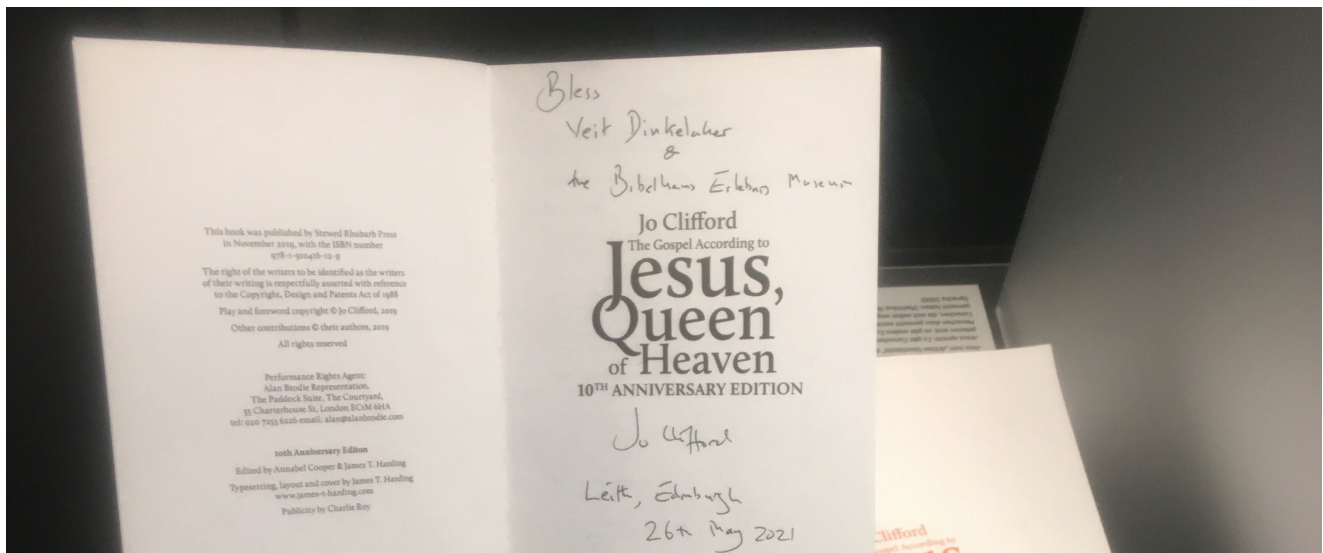 This book was published by Stewed Rhubarb Press
in November 2019, with the ISBN number
978-1-900416-12-9
The right of the writers to be identified as the writers
of their writing is respectfully asserted with reference
to the Copyright, Design and Patents Act of 1988
Play and foreword copyright © Jo Clifford, 2019
Other contributions © their authors, 2019
All rights reserved
Performance Rights Agent:
Alan Brodie Representation,
The Paddock Suite, The Courtyard,
55 Charterhouse St, London EC1M 6HA
tel: 020 7253 6226 email: alan@alanbrodie.com
10th Anniversary Editon
Edited by Annabel Cooper & James T. Harding
Typesetting, layout and cover by James T. Harding
www.james-t-harding.com
Publicity by Charlie Roy
Bless
Veit Dinkelaker
&
the Bibelhaus Erlebnis Museum
Jo Clifford
The Gospel According to
Jesus,
Queen
of Heaven
10TH ANNIVERSARY EDITION
Jo Clifford
Leith, Edinburgh
26th May 2021
Clifford
Gospel According to